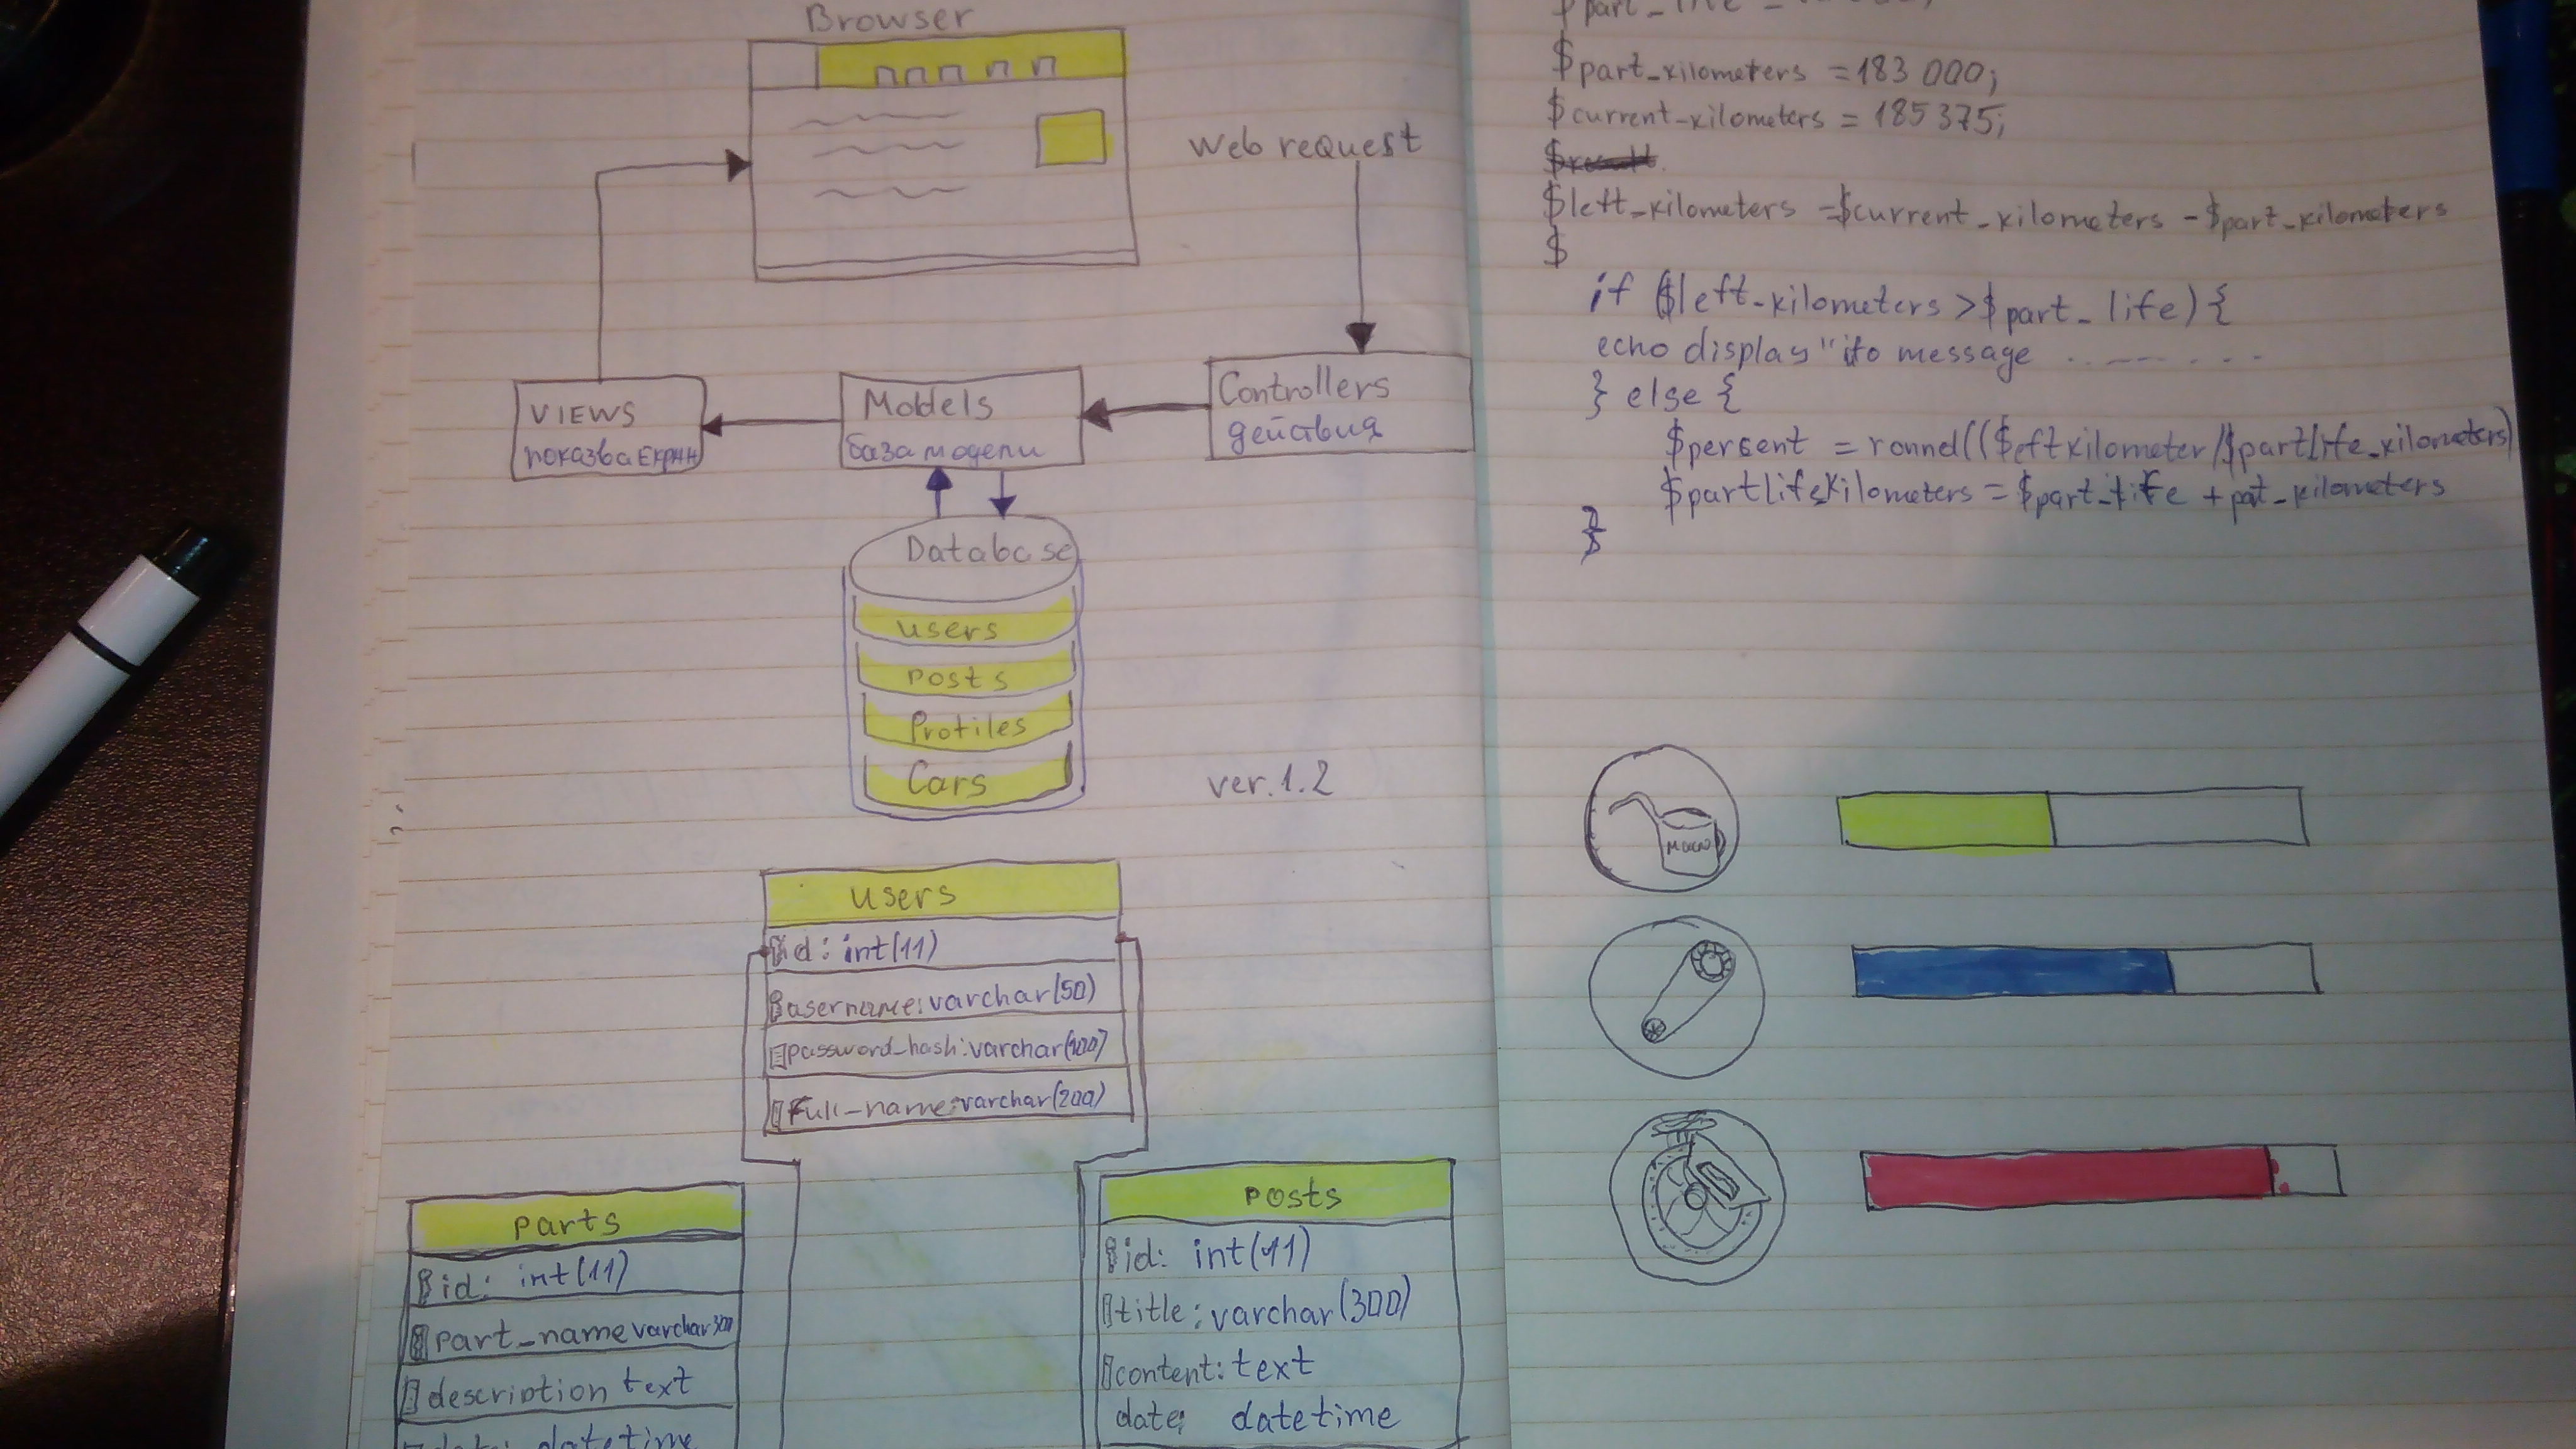 Browser
Web request
VIEWS
показва Екран
Models
база модели
Controllers
действия
Database
users
posts
Profiles
Cars
ver.1.2
users
id: int(11)
username: varchar(50)
password_hash: varchar(100)
Full_name: varchar(200)
parts
id: int(11)
part_name varchar 300
description text
date: datetime
posts
id: int(11)
title: varchar(300)
content: text
date: datetime
$part_kilometers = 183 000;
$current_kilometers = 185375;
$left_kilometers = $current_kilometers - $part_kilometers
$
if ($left_kilometers > $part_life) {
echo display " message
} else {
$persent = ronnd(($eftkilometer/$partlife_kilometers)
$partlifekilometers = $part_life + pat_kilometers
}
масло